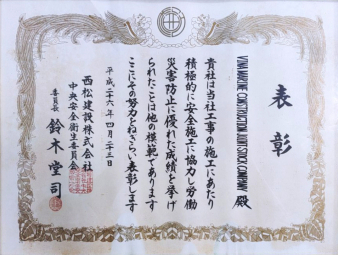 表彰
VINA MARINE CONSTRUCTION JOINT STOCK COMPANY 殿
貴社は当社工事の施工にあたり
積極的に安全施工に協力し労働
災害防止に優れた成績を挙げ
られたことは他の模範であります
ここにその努力をねぎらい表彰します
平成二十六年四月二十三日
西松建設株式会社
中央安全衛生委員会
委員長 鈴木堂司